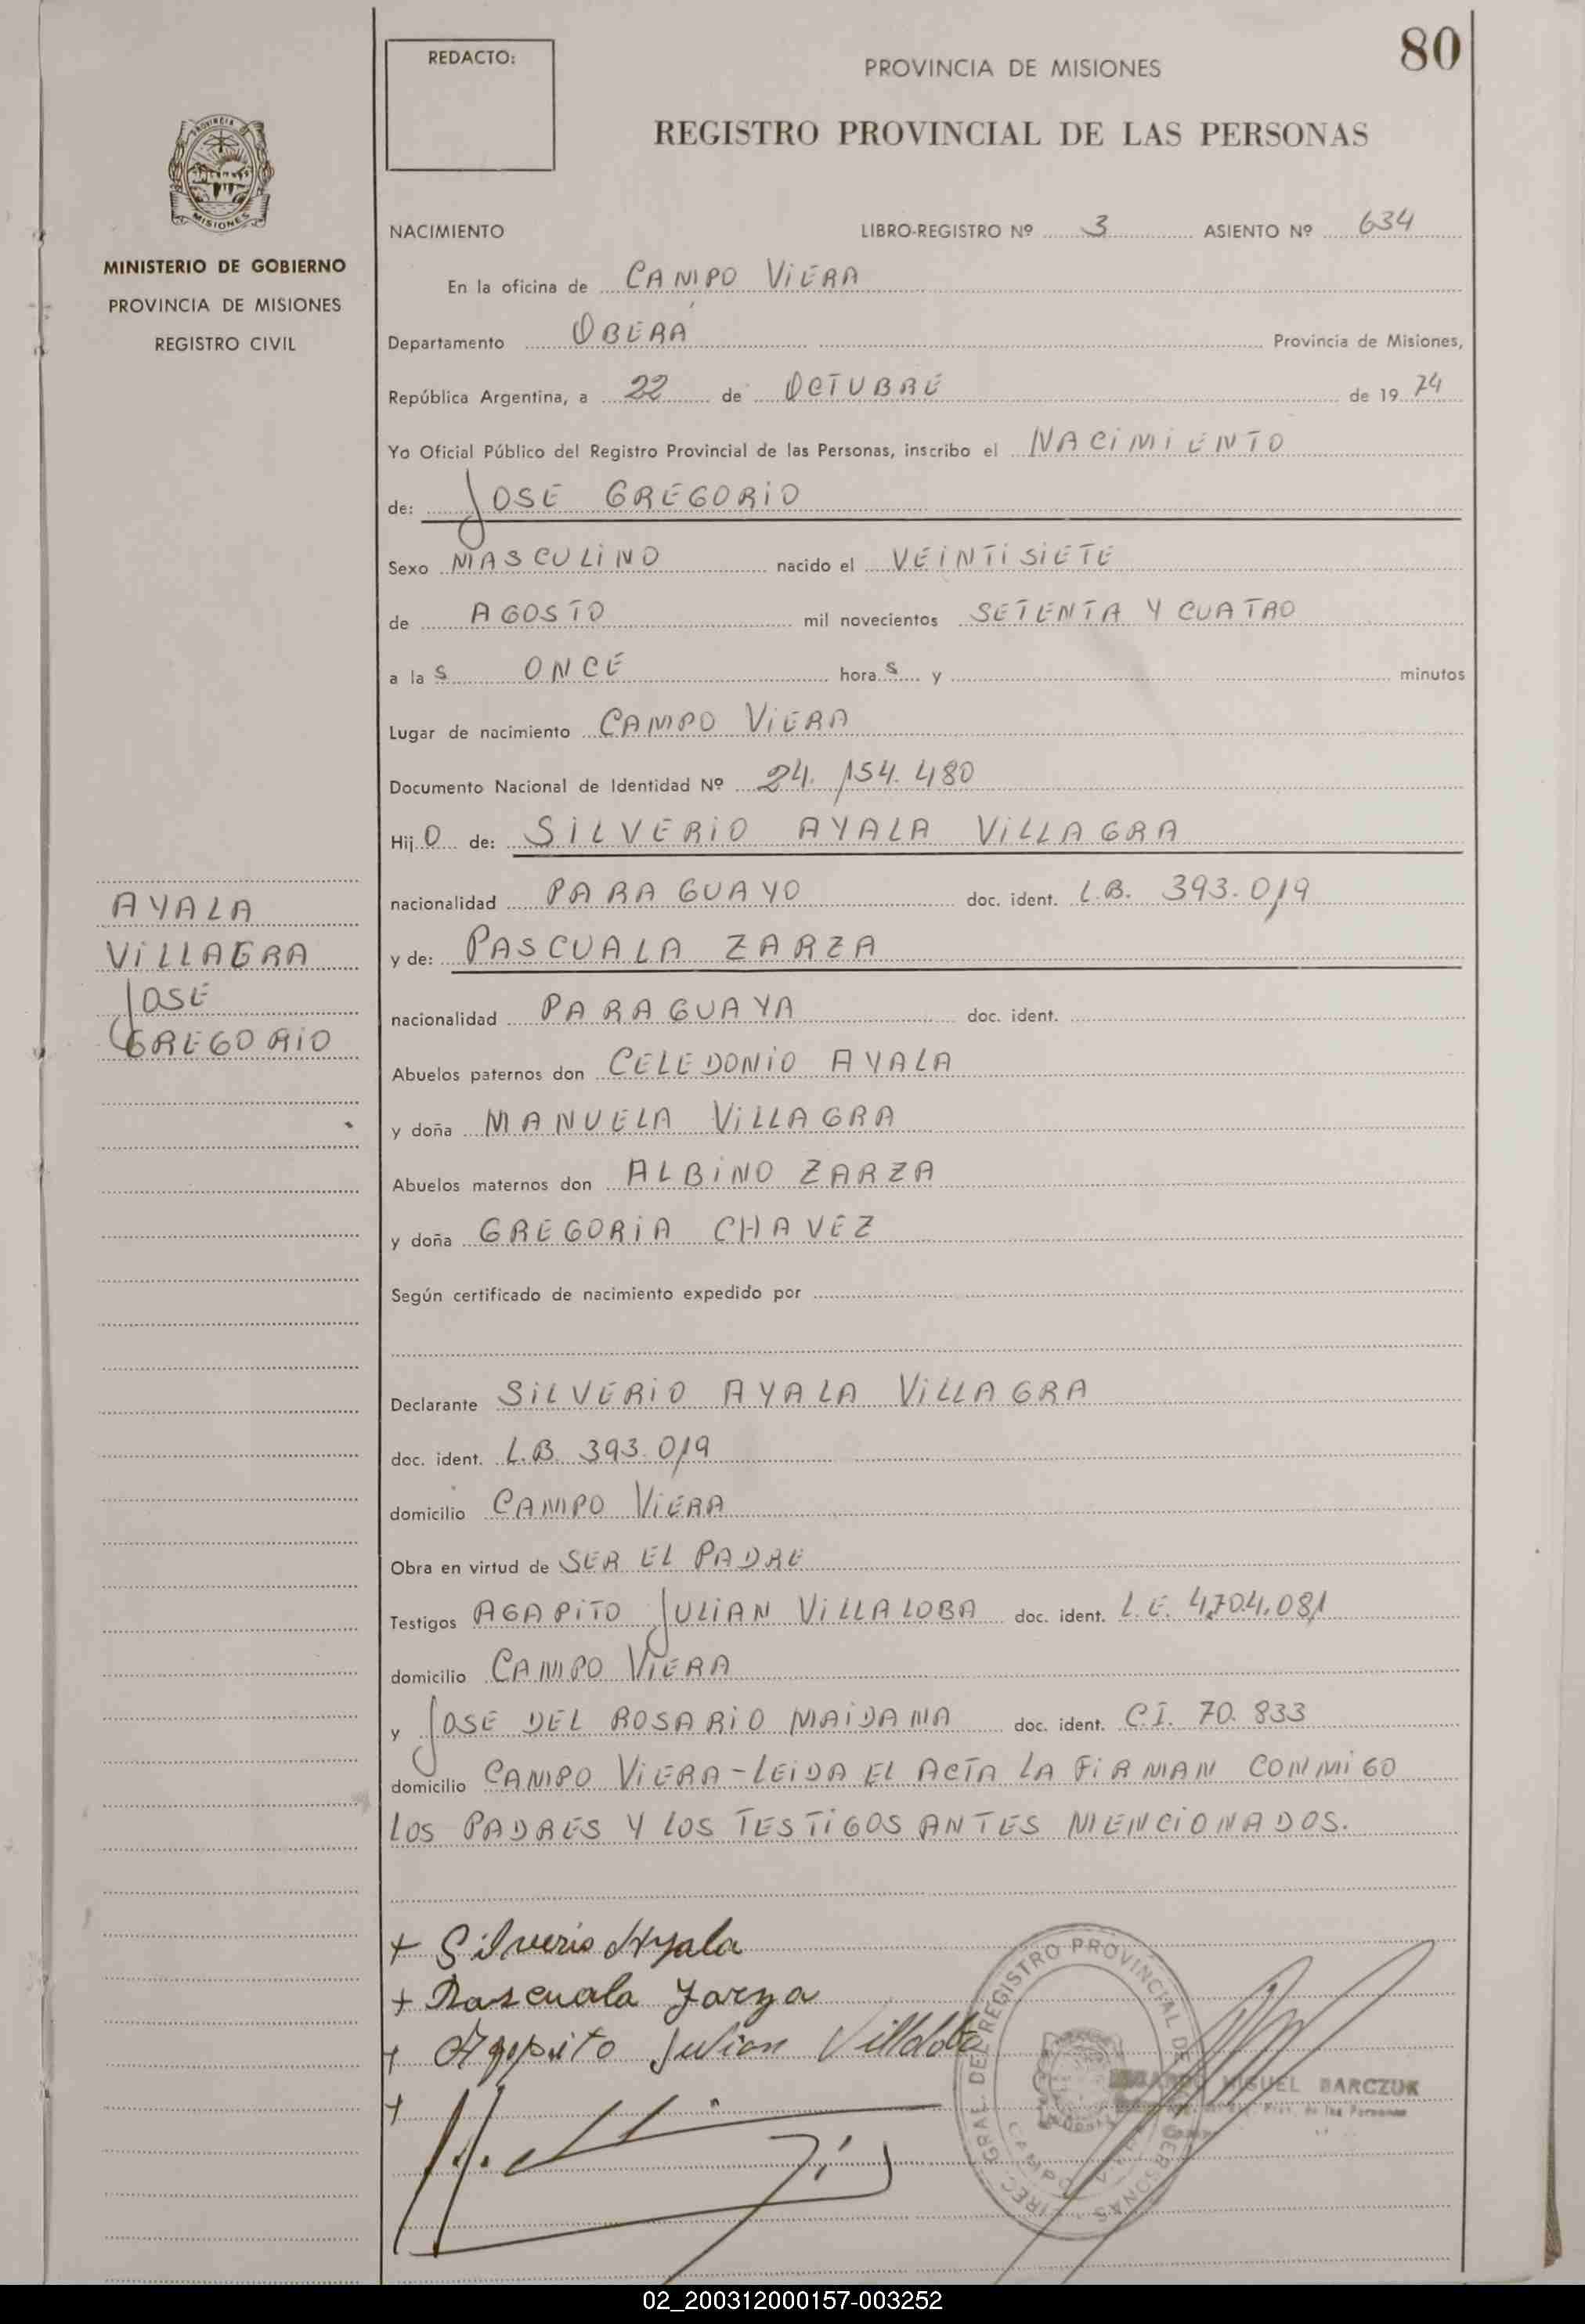 80
REDACTO:
PROVINCIA DE MISIONES
REGISTRO PROVINCIAL DE LAS PERSONAS
PROVINCIA DE
MISIONES
MINISTERIO DE GOBIERNO
PROVINCIA DE MISIONES
REGISTRO CIVIL
NACIMIENTO LIBRO-REGISTRO Nº 3 ASIENTO Nº 634
En la oficina de CAMPO VIERA
Departamento OBERA Provincia de Misiones,
República Argentina, a 22 de OCTUBRE de 19 74
Yo Oficial Público del Registro Provincial de las Personas, inscribo el NACIMIENTO
de: JOSE GREGORIO
Sexo MASCULINO nacido el VEINTISIETE
de AGOSTO mil novecientos SETENTA Y CUATRO
a la S ONCE hora S y minutos
Lugar de nacimiento CAMPO VIERA
Documento Nacional de Identidad Nº 24.154.480
Hij O de: SILVERIO AYALA VILLAGRA
nacionalidad PARAGUAYO doc. ident. L.B. 393.019
y de: PASCUALA ZARZA
nacionalidad PARAGUAYA doc. ident.
AYALA
VILLAGRA
JOSE
GREGORIO
Abuelos paternos don CELEDONIO AYALA
y doña MANUELA VILLAGRA
Abuelos maternos don ALBINO ZARZA
y doña GREGORIA CHAVEZ
Según certificado de nacimiento expedido por
Declarante SILVERIO AYALA VILLAGRA
doc. ident. L.B. 393.019
domicilio CAMPO VIERA
Obra en virtud de SER EL PADRE
Testigos AGAPITO JULIAN VILLALOBA doc. ident. L.E. 4.704.081
domicilio CAMPO VIERA
y JOSE DEL ROSARIO MAIDANA doc. ident. C.I. 70.833
domicilio CAMPO VIERA-LEIDA EL ACTA LA FIRMAN CONMIGO
LOS PADRES Y LOS TESTIGOS ANTES MENCIONADOS.
+ Silverio Ayala
+ Pascuala Zarza
+ Agapito Julian Villaloba
+
DIREC. GRAL. DEL REGISTRO PROVINCIAL DE PERSONAS
CAMPO
MIGUEL BARCZUK
de las Personas
02_200312000157-003252